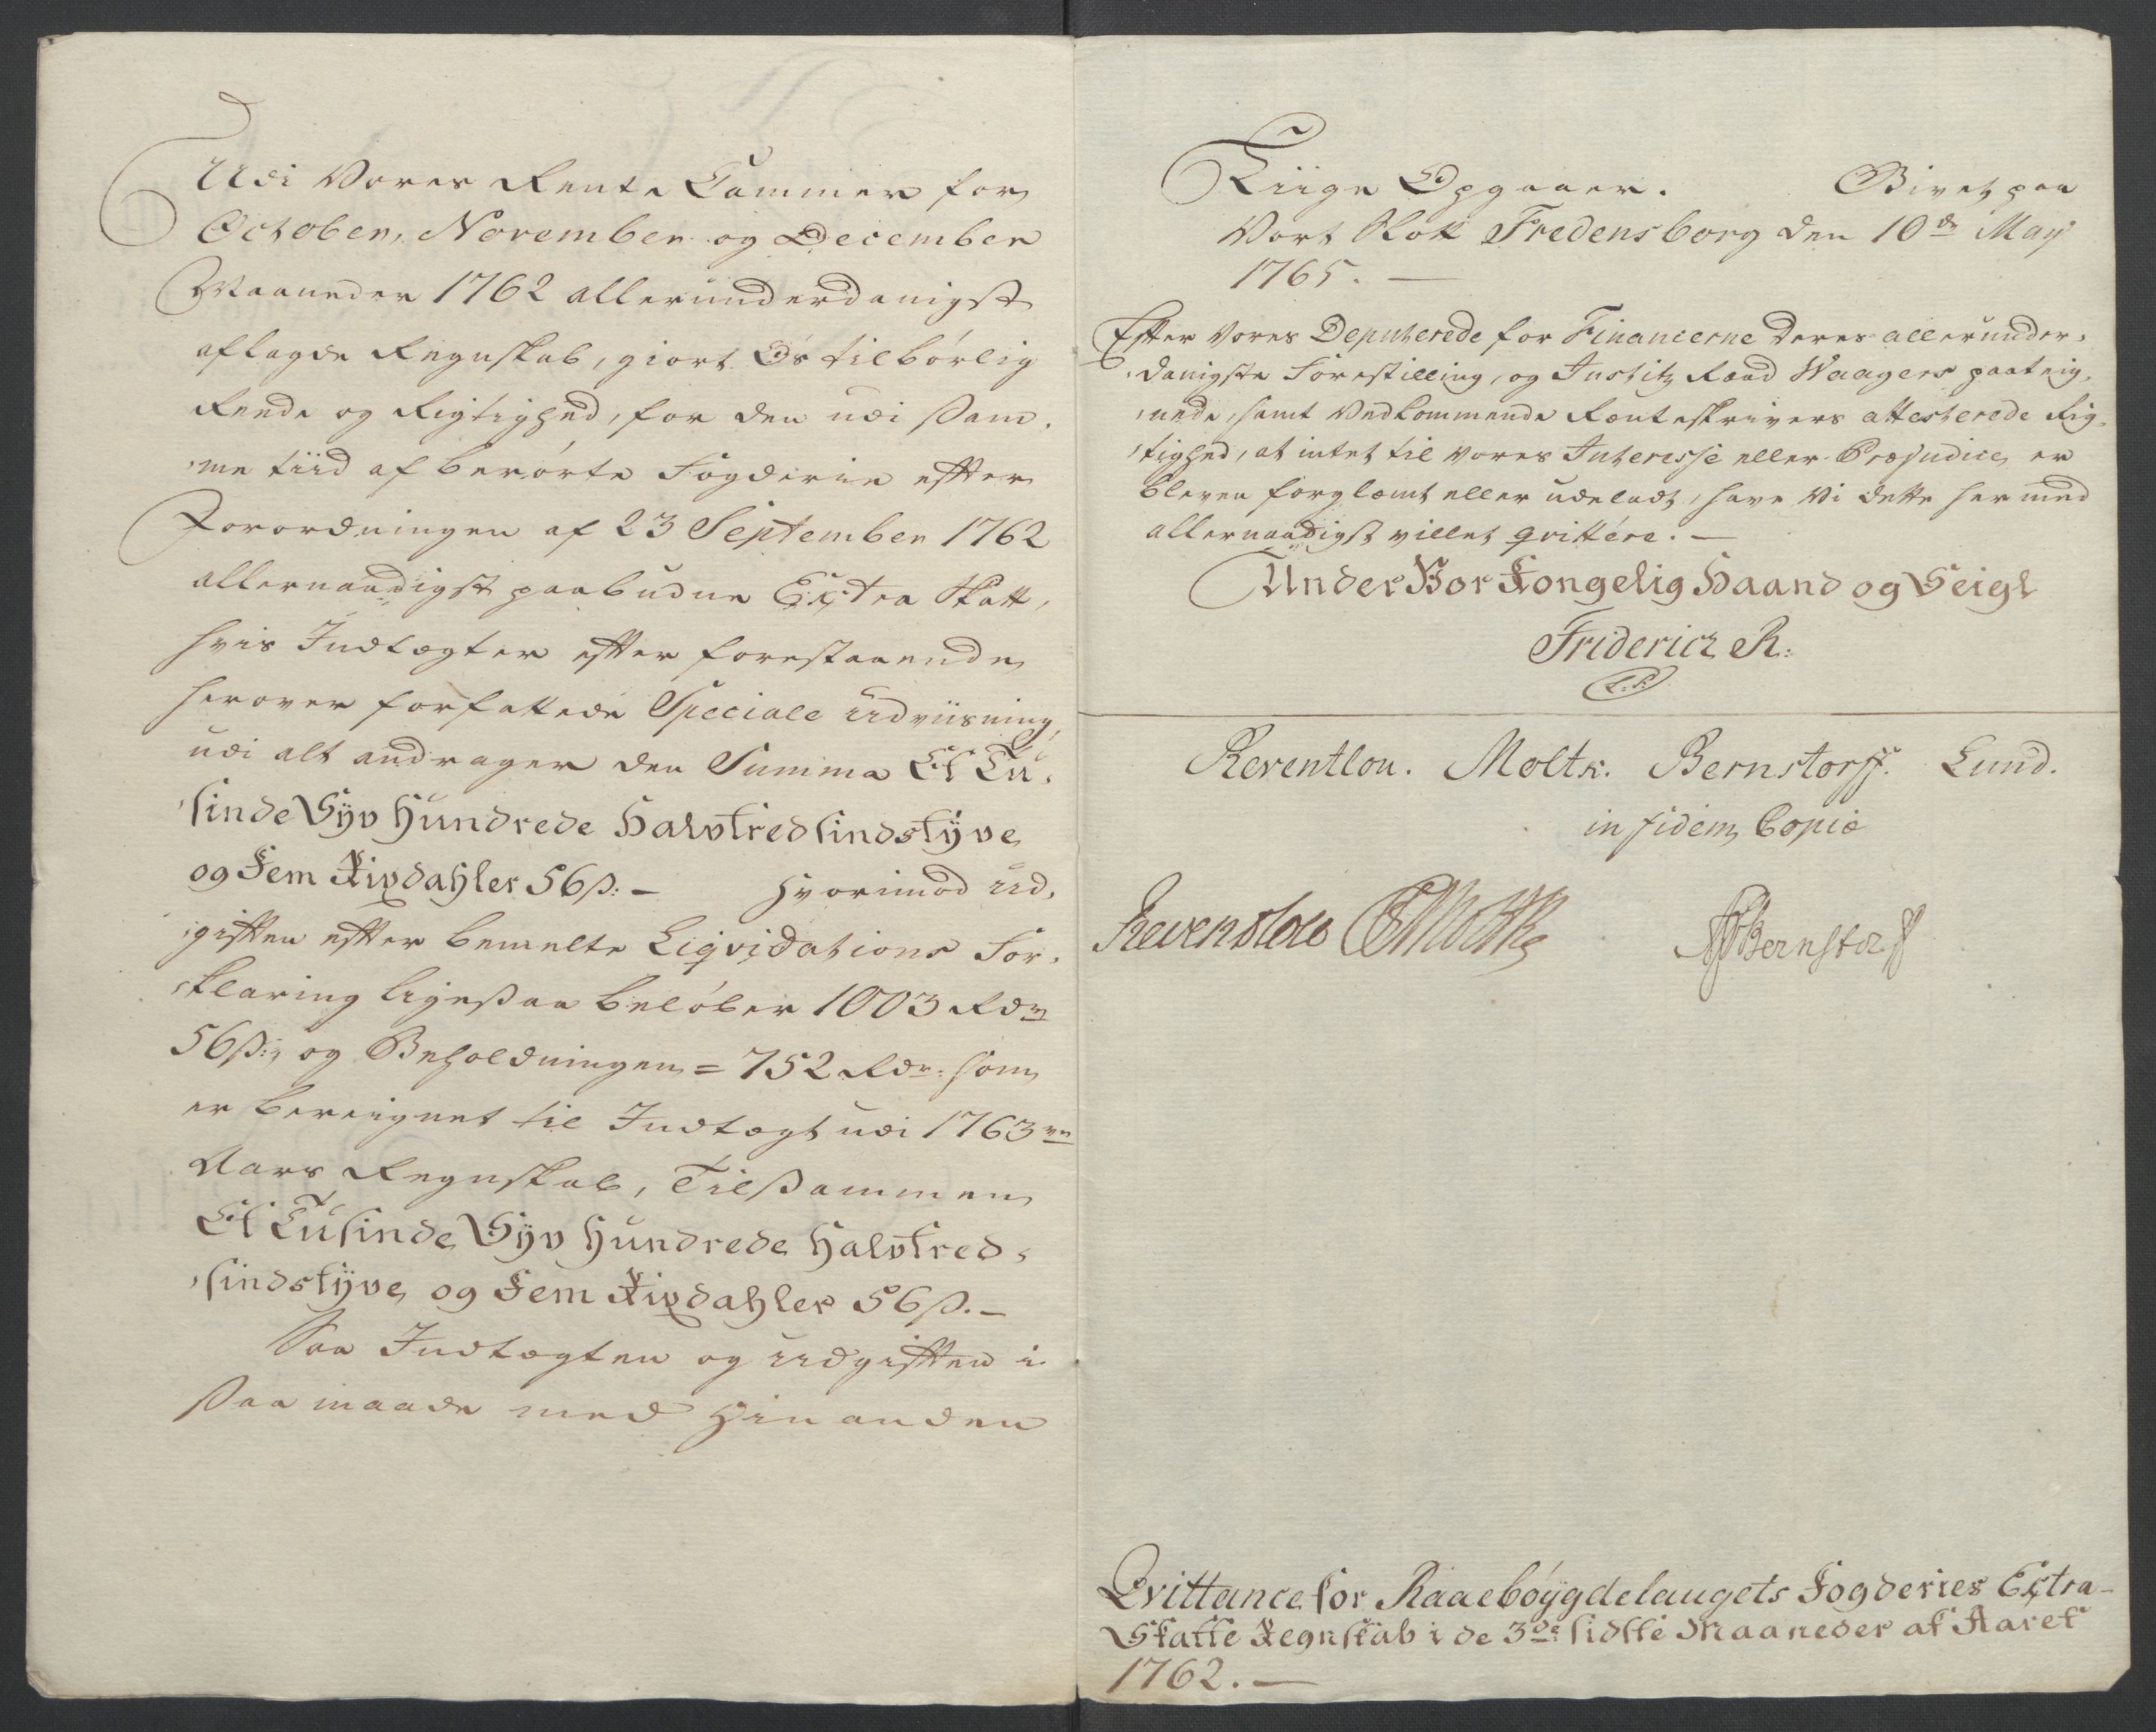 Udi Vores Rente Cammer for
October, November og December
Maaneder 1762 allerunderdanigst
aflagde Regnskab, giort Os tilbørlig
Rede og Rigtighed, for den udi Sam¬
me tiid af berørte Fogderie efter
Forordningen af 23 September 1762
allernaadigst paabudne Extra Skatt,
hvis Indtægter efter forestaaende
herover forfattede Speciale Udviisning,
udi alt andrager den Summa Et Tu¬
sinde Syv Hundrede Halvtredsindstÿve
og Fem Rixdahler 56 ß:–   hvorimod Ud¬
giften efter bemelte Liqvidations For¬
klaring ligesaa beløber 1003 Rdr
56 ß:, og Beholdningen = 752 Rdr: som
er bereignet til Indtægt udi 1763 de
Aars Regnskab, Tilsammen
Et Tusinde Syv Hundrede Halvtred¬
sindstÿve og Fem Rixdahler 56 ß.–
Saa Indtægten og Udgiften i
saa maade med Hinanden
Liige Opgaaer.   Givet paa
Vort Slott Fredensborg den 10de May
1765. –
Efter Vores Deputerede for Financerne deres allerunder¬
danigste Forestilling, og Justitz Raad Waagers paateig¬
nede, samt Vedkommende Renteskrivers attesterede Rig¬
tighed, at intet til Vores Interesse eller Præjudice er
bleven forglemt eller udeladt, have Vi dette her med
allernaadigst villet qvittére. –
Under Vor Kongelig Haand og Seigl
Friderich R:
L.S.
Reventlou. Moltk. Bernstorff. Lund.
in fidem Copiæ
Reventlow Moltke Bernstorff
Qvittance for Raaebøÿgdelaugets Fogderies Extra-
Skatte Regnskab i de 3de sidste Maaneder af Aaret
1762. –